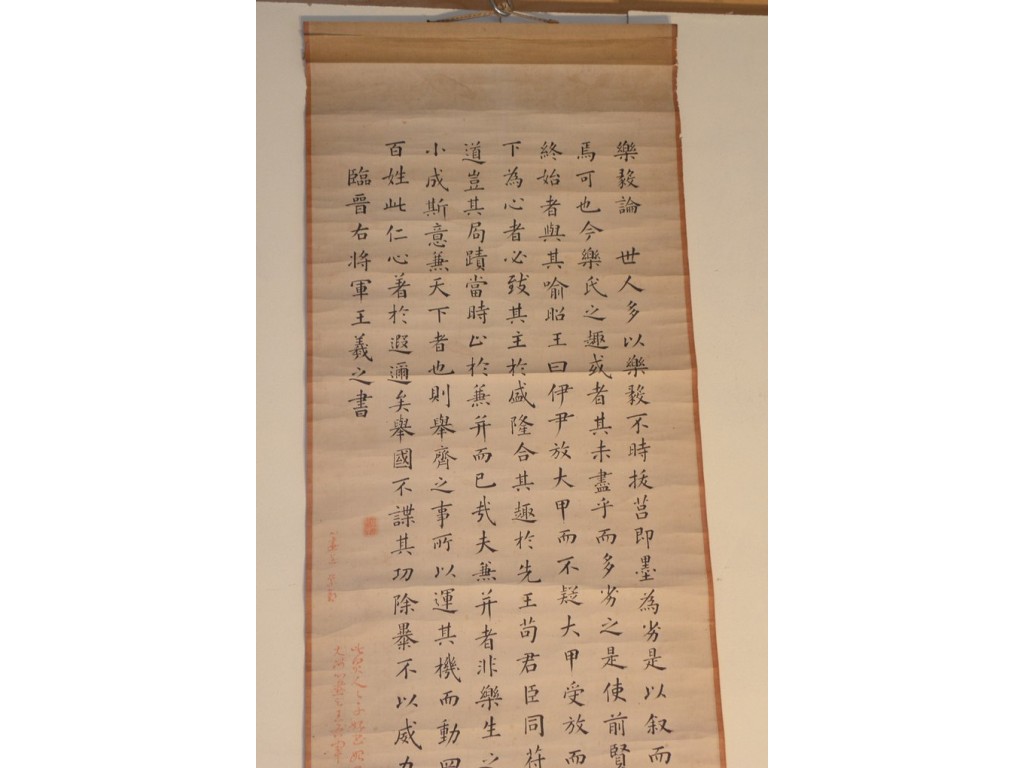 樂毅論 世人多以樂毅不時拔莒即墨為劣是以叙而
焉可也今樂氏之趣或者其未盡乎而多劣之是使前賢
終始者與其喻昭王曰伊尹放大甲而不疑大甲受放而
下為心者必致其主於盛隆合其趣於先王苟君臣同苻
道豈其局蹟當時止於兼并而已哉夫兼并者非樂生之
小成斯意兼天下者也則舉齊之事所以運其機而動四
百姓此仁心著於遐邇矣舉國不謀其功除暴不以威力
臨晉右將軍王羲之書